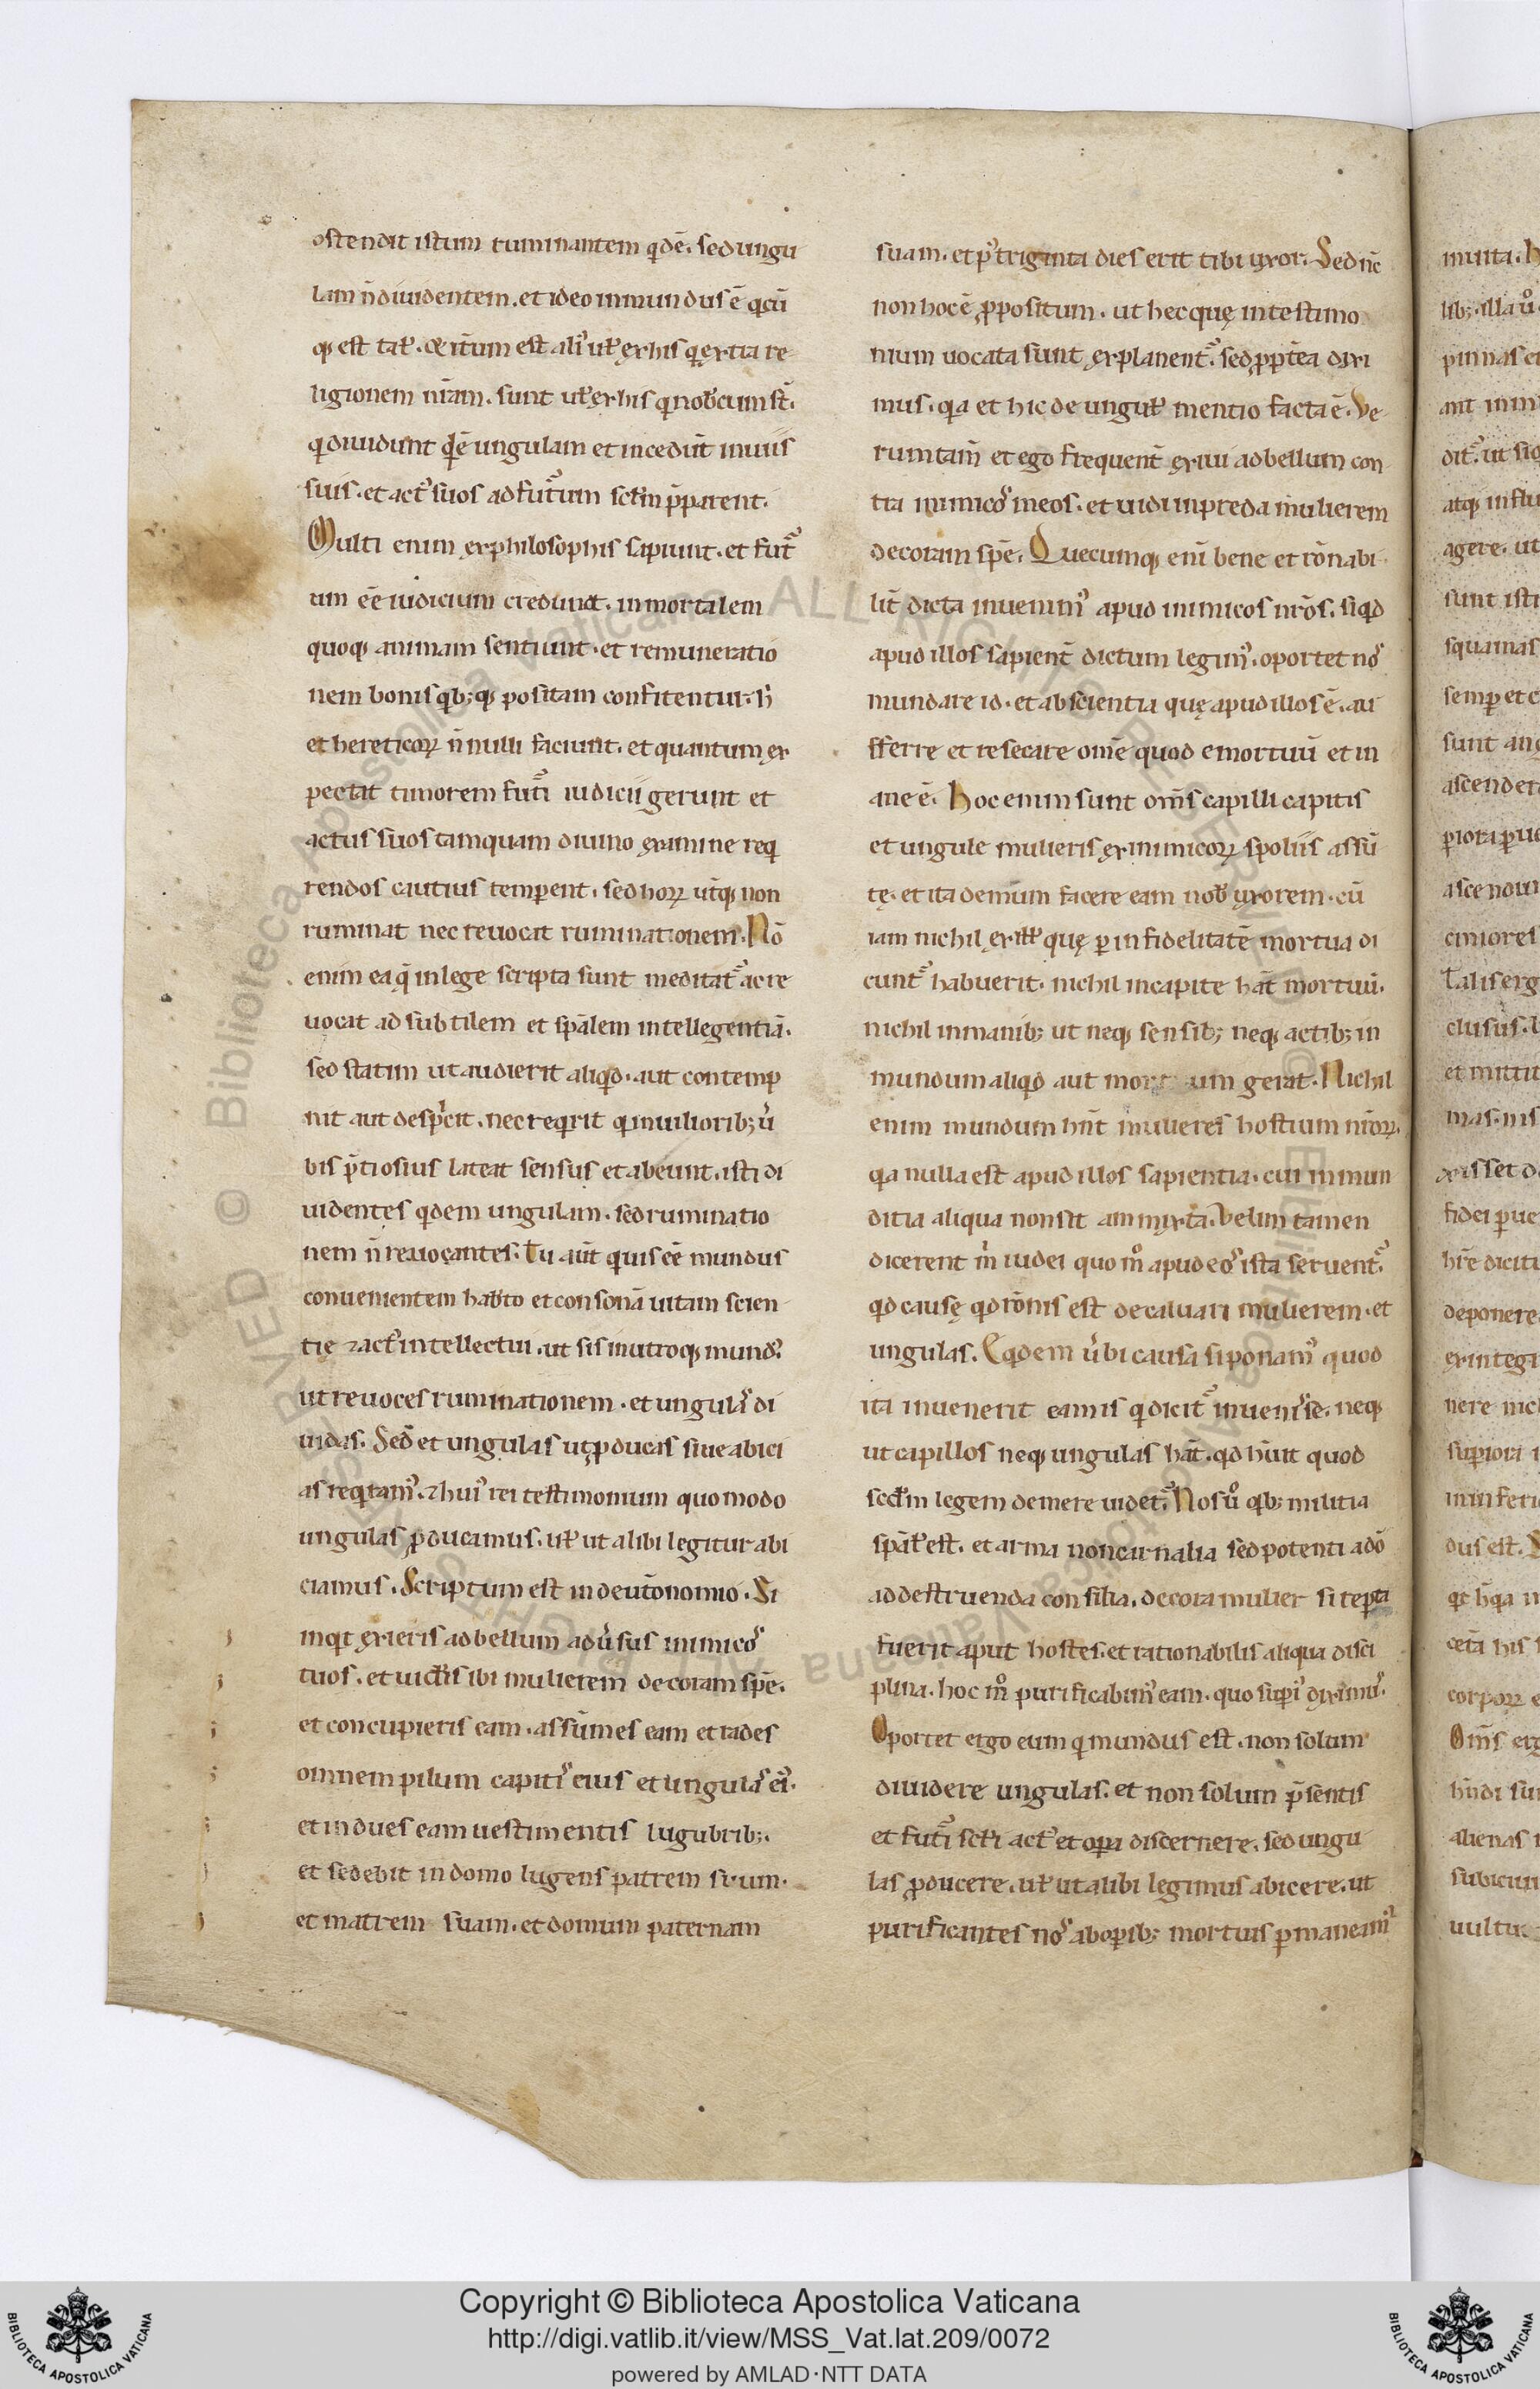 ostendit istum ruminantem qdē. sed ungu
lam n̄ diuidentem. et ideo inmundus ē qcū
q; est tal̓. & itum est aliꝰ uel̓ ex his q extra re
ligionem nr̄am. sunt ul̓ ex his q nobcum st̄.
q diuidunt qdē ungulam et incedūt in uiis
suis. et actꝰ suos ad futꝰum sclm p̄parent.
Multi enim ex philosophis sapiunt. et futꝰ
um eē iudicium credunt. inmortalem
quoq; animam sentiunt. et remuneratio
nem bonis qb;q; positam confitentur. h̄
et hereticoꝝ n̄nulli faciunt. et quantum ex
pectat timorem futꝰi iudicii gerunt et
actus suos tamquam diuino examine req
rendos cautius temperent. sed hoꝝ ut̄q; non
ruminat nec reuocat ruminationem. Nō
enim ea q̄ in lege scripta sunt meditatꝰ ac re
uocat ad subtilem et spālem intellegentiā.
sed statim ut audierit aliqd. aut contemp
nit aut despicit. nec reqrit q in uilioribꝫ ū
bis p̄tiosius lateat sensus et abeunt. isti di
uidentes qdem ungulam. sed ruminatio
nem n̄ reuocantes. Tu aūt qui uis eē mundus
conuenientem habeto et consonā uitam scien
tię ⁊ actꝰ intellectui. ut sis in utroq; mundꝰ
ut reuoces ruminationem. et ungulā di
uidas. Sed et ungulas ut ꝓducas siue abici
as reqramꝰ. ⁊ huiꝰ rei testimonium quomodo
ungulas ꝓducamus. ul̓ ut alibi legitur abi
ciamus. Scriptum est in deutonomio. Si
inqt exieris ad bellum adūsus inimicoˢ
tuos. et uidis ibi mulierem decoram spē.
et concupieris eam. assūmes eam et rades
omnem pilum capitiˢ eius et ungulaˢ eiꝰ.
et indues eam uestimentis lugubribꝫ.
et sedebit in domo lugens patrem suum.
et matrem suam. et domum paternam
suam. et pꝰ triginta dies erit tibi uxor. Sed nc̄
non hoc ē ꝓpositum. ut hec quę in testimo
nium uocata sunt explanentꝰ. sed ꝓpt̄ea dixi
mus. qa et hic de ungul̓ mentio facta ē. Ve
rumtam̄ et ego frequent̄ exiui ad bellum con
tra inimicoˢ meos. et uidi in preda mulierem
decoram spē. Quecumq; enī bene et rōnabi
lit̄ dicta inuenimꝰ apud inimicos nr̄os. si qd
apud illos sapient̄ dictum legimꝰ. oportet noˢ
mundare id. et ab scientia quę apud illos ē. au
fferre et resecare omē quod emortuū et in
ane ē. Hoc enim sunt om̄s capilli capitis
et ungule mulieris ex inimicoꝝ spoliis assū
tę. et ita demum facere eam nob uxorem. cū
iam nichil ex il̓l̓ quę p infidelitatē mortua di
cuntꝰ habuerit. nichil in capite hāt mortuū.
nichil in manibꝫ ut neq; sensibꝫ neq; actibꝫ in
mundum aliqd aut mort um gerat. Nichil
enim mundum hn̄t mulieres hostium nr̄oꝝ.
qa nulla est apud illos sapientia. cui inmun
ditia aliqua non sit ammixta. Velim tamen
dicerent m̄ iudei quo mͦ apud eoˢ ista seruentꝰ
qd causę qd rōnis est decaluari mulierem. et
ungulas. Eqdem ūbi causa si ponamꝰ quod
ita inuenerit eam is q dicitꝰ inuenisse. neq;
ut capillos neq; ungulas hāt. qd hūit quod
scdm legem demere uidetꝰ. Nos ūͦ qbꝫ militia
spāl̓ est. et arma non carnalia sed potenti adō
ad destruenda consilia. decora mulier si repta
fuerit aput hostes. et rationabilis aliqua disci
plina. hoc mͦ purificabimꝰ eam. quo supiꝰ diximꝰ.
Oportet ergo eum q mundus est. non solum
diuidere ungulas. et non solum p̄sentis
et futꝰi scl̓i actꝰ et opa discernere. sed ungu
las ꝓducere. ul̓ ut alibi legimus abicere. ut
purificantes noˢ ab opibꝫ mortuis pmaneamꝰ
Copyright © Biblioteca Apostolica Vaticana
http://digi.vatlib.it/view/MSS_Vat.lat.209/0072
powered by AMLAD·NTT DATA
BIBLIOTECA APOSTOLICA VATICANA
BIBLIOTECA APOSTOLICA VATICANA